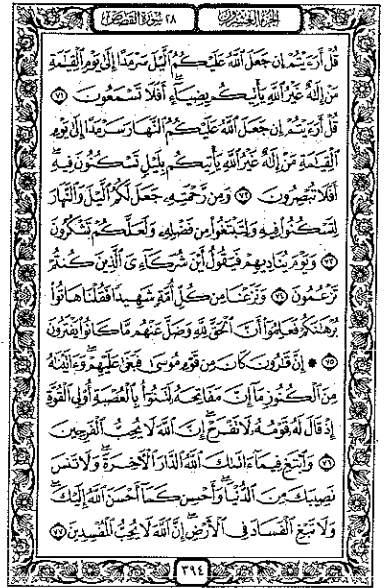 الجزء العشرون
٢٨ سورة القصص
قُلْ أَرَءَيْتُمْ إِن جَعَلَ ٱللَّهُ عَلَيْكُمُ ٱلَّيْلَ سَرْمَدًا إِلَىٰ يَوْمِ ٱلْقِيَٰمَةِ
مَنْ إِلَٰهٌ غَيْرُ ٱللَّهِ يَأْتِيكُم بِضِيَآءٍ أَفَلَا تَسْمَعُونَ ٧١
قُلْ أَرَءَيْتُمْ إِن جَعَلَ ٱللَّهُ عَلَيْكُمُ ٱلنَّهَارَ سَرْمَدًا إِلَىٰ يَوْمِ
ٱلْقِيَٰمَةِ مَنْ إِلَٰهٌ غَيْرُ ٱللَّهِ يَأْتِيكُم بِلَيْلٍ تَسْكُنُونَ فِيهِ
أَفَلَا تُبْصِرُونَ ٧٢ وَمِن رَّحْمَتِهِۦ جَعَلَ لَكُمُ ٱلَّيْلَ وَٱلنَّهَارَ
لِتَسْكُنُوا۟ فِيهِ وَلِتَبْتَغُوا۟ مِن فَضْلِهِۦ وَلَعَلَّكُمْ تَشْكُرُونَ
٧٣ وَيَوْمَ يُنَادِيهِمْ فَيَقُولُ أَيْنَ شُرَكَآءِىَ ٱلَّذِينَ كُنتُمْ
تَزْعُمُونَ ٧٤ وَنَزَعْنَا مِن كُلِّ أُمَّةٍ شَهِيدًا فَقُلْنَا هَاتُوا۟
بُرْهَٰنَكُمْ فَعَلِمُوٓا۟ أَنَّ ٱلْحَقَّ لِلَّهِ وَضَلَّ عَنْهُم مَّا كَانُوا۟ يَفْتَرُونَ
٧٥ ۞ إِنَّ قَٰرُونَ كَانَ مِن قَوْمِ مُوسَىٰ فَبَغَىٰ عَلَيْهِمْ وَءَاتَيْنَٰهُ
مِنَ ٱلْكُنُوزِ مَآ إِنَّ مَفَاتِحَهُۥ لَتَنُوٓأُ بِٱلْعُصْبَةِ أُو۟لِى ٱلْقُوَّةِ
إِذْ قَالَ لَهُۥ قَوْمُهُۥ لَا تَفْرَحْ إِنَّ ٱللَّهَ لَا يُحِبُّ ٱلْفَرِحِينَ
٧٦ وَٱبْتَغِ فِيمَآ ءَاتَىٰكَ ٱللَّهُ ٱلدَّارَ ٱلْءَاخِرَةَ وَلَا تَنسَ
نَصِيبَكَ مِنَ ٱلدُّنْيَا وَأَحْسِن كَمَآ أَحْسَنَ ٱللَّهُ إِلَيْكَ
وَلَا تَبْغِ ٱلْفَسَادَ فِى ٱلْأَرْضِ إِنَّ ٱللَّهَ لَا يُحِبُّ ٱلْمُفْسِدِينَ ٧٧
٣٩٤